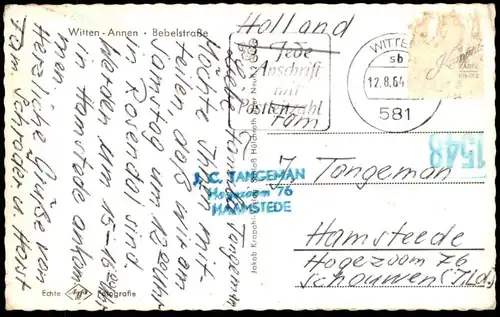 Witten - Annen · Bebelstraße
Liebe Familie Tangeman
Möchte Ihnen mit-
teilen daß wir am
Samstag um 12 20 Uhr
in Rosendal sind,
werden um 15-16 Uhr
in Hamstede ankom
men
Herzliche Grüße von
Fam. Schrader u. Horst
Echte
Agfa
Fotografie
Jakob Krapohl
Holland
Jede
Anschrift
mit
Postleitzahl
WITTEN
sb
12.8.64
581
Fam
J. Tangeman
Hamsteede
Hogezoom 76
Schouwen (Nld.)
J. C. TANGEMAN
Hogezoom 76
HAMSTEDE
1548